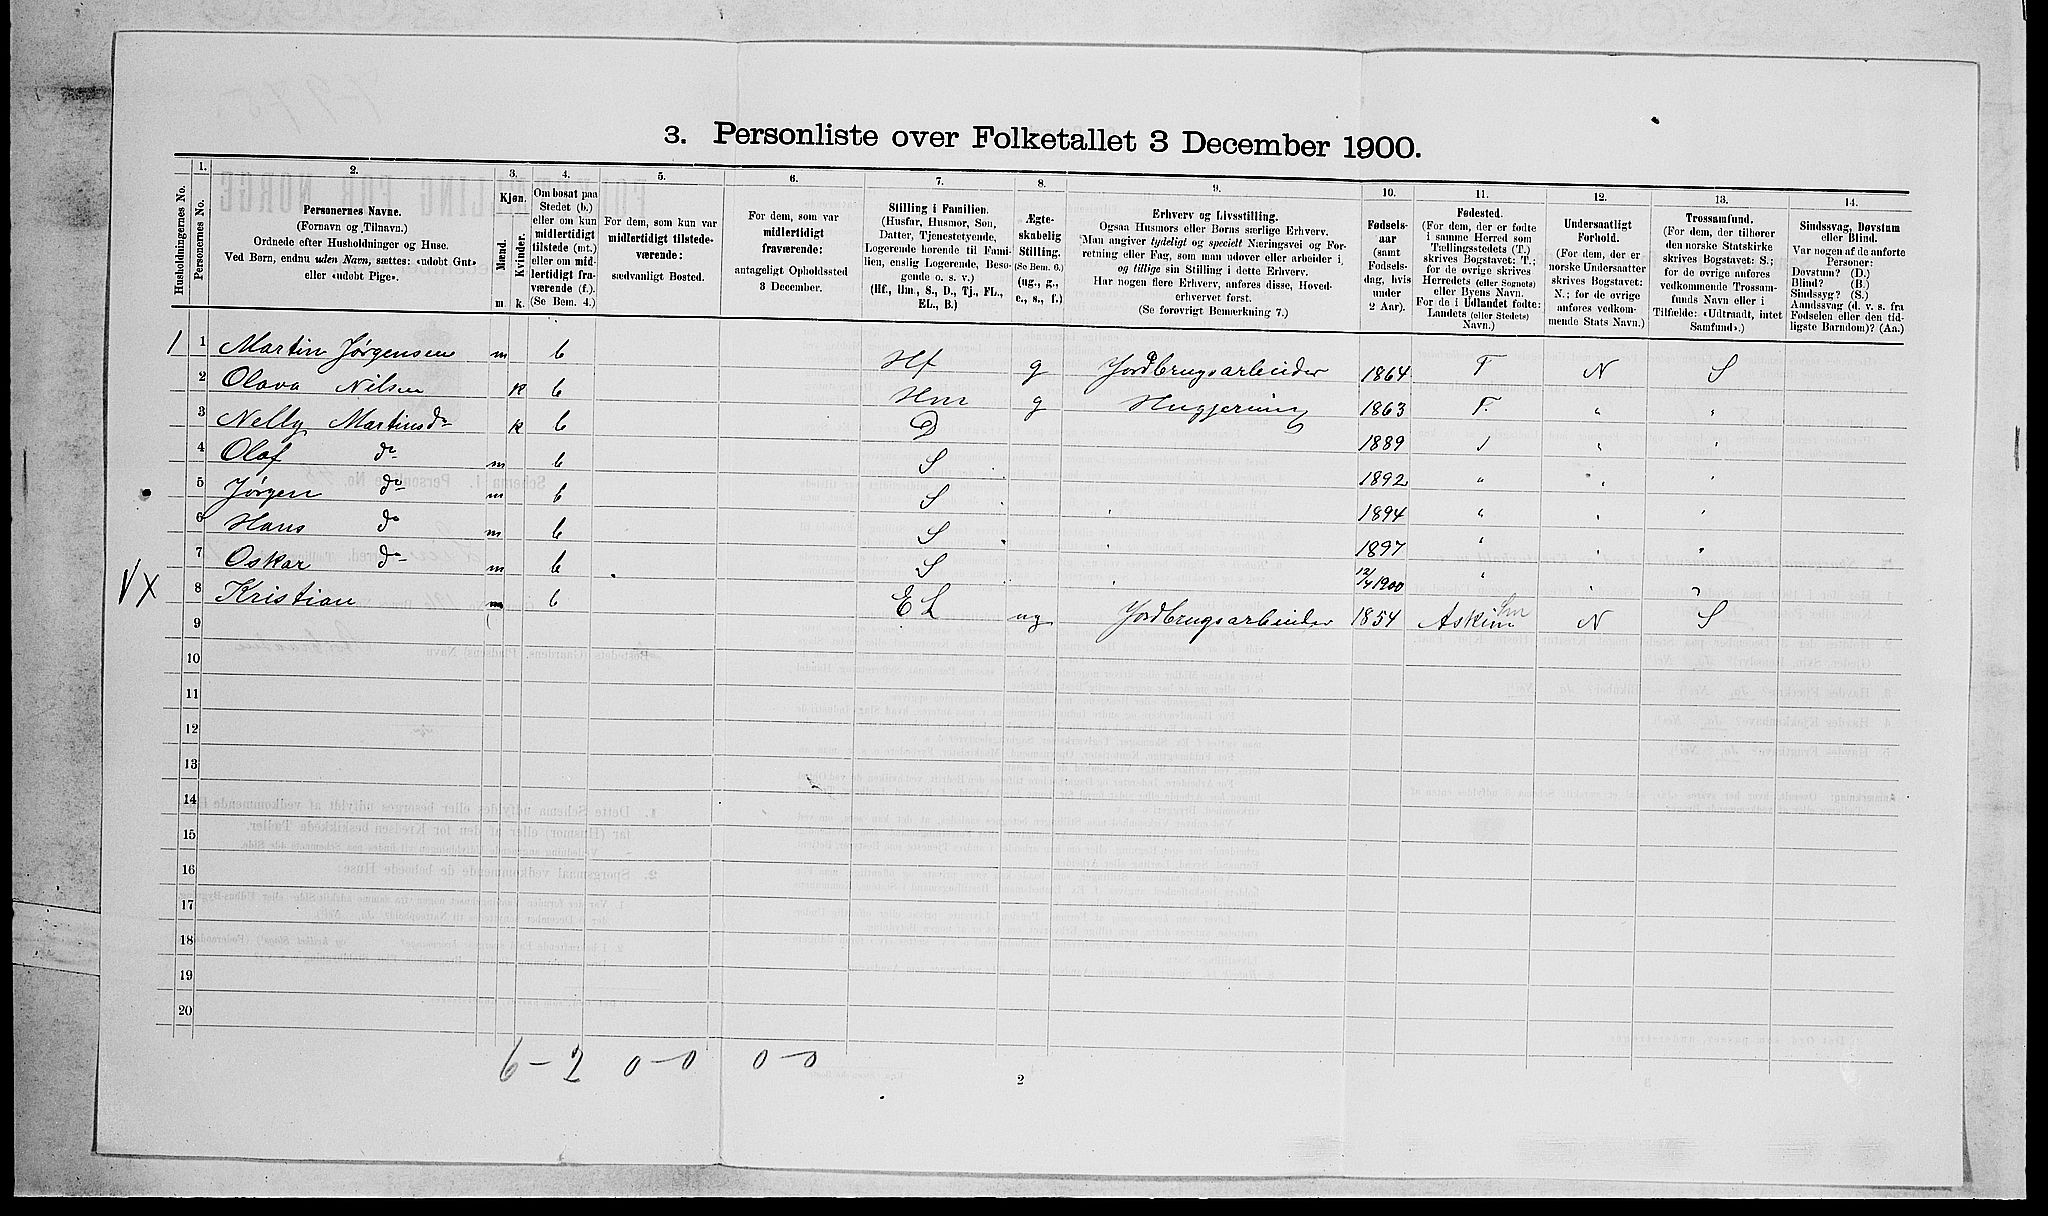 3. Personliste over Folketallet 3 December 1900.
Husholdningernes No.
1.
Personernes No.
2.
Personernes Navne.
(Fornavn og Tilnavn.)
Ordnede efter Husholdninger og Huse.
Ved Børn, endnu uden Navn, sættes: «udøbt Gut»
eller «udøbt Pige».
3.
Kjøn.
Mænd.
Kvinder.
m.
k.
4.
Om bosat paa
Stedet (b.)
eller om kun
midlertidigt
tilstede (mt.)
eller om mid-
lertidigt fra-
værende (f.).
(Se Bem. 4.)
5.
For dem, som kun var
midlertidigt tilstede-
værende:
sædvanligt Bosted.
6.
For dem, som var
midlertidigt
fraværende:
antageligt Opholdssted
3 December.
7.
Stilling i Familien.
(Husfar, Husmor, Søn,
Datter, Tjenestetyende,
Logerende hørende til Fami-
lien, enslig Logerende, Besø-
gende o. s. v.)
(Hf., Hm., S., D., Tj., FL.,
EL., B.)
8.
Ægte-
skabelig
Stilling.
(Se Bem. 6.)
(ug., g.,
e., s., f.)
9.
Erhverv og Livsstilling.
Ogsaa Husmors eller Børns særlige Erhverv.
Man angiver tydeligt og specielt Næringsvei og For-
retning eller Fag, som man udøver eller arbeider i,
og tillige sin Stilling i dette Erhverv.
Har nogen flere Erhverv, anføres disse, Hoved-
erhvervet først.
(Se forøvrigt Bemærkning 7.)
10.
Fødsels-
aar
(samt
Fødsels-
dag, hvis
under
2 Aar).
11.
Fødested.
(For dem, der er fødte
i samme Herred som
Tællingsstedets (T.)
skrives Bogstavet: T.;
for de øvrige skrives
Herredets (eller Sognets)
eller Byens Navn.
For de i Udlandet fødte:
Landets (eller Stedets)
Navn.)
12.
Undersaatligt
Forhold.
(For dem, der er
norske Undersaatter
skrives Bogstavet:
N.; for de øvrige
anføres vedkom-
mende Stats Navn.)
13.
Trossamfund.
(For dem, der tilhører
den norske Statskirke
skrives Bogstavet: S.;
for de øvrige anføres
vedkommende Trossam-
funds Navn eller i
Tilfælde: «Udtraadt, intet
Samfund».)
14.
Sindssvag, Døvstum
eller Blind.
Var nogen af de anførte
Personer:
Døvstum? (D.)
Blind? (B.)
Sindssyg? (S.)
Aandssvag (d. v. s. fra
Fødselen eller den tid-
ligste Barndom)? (Aa.)
1 1 Martin Jørgensen m b Hf g Jordbrugsarbeider 1864 T N S
2 Olava Nilsen k b Hm g Husgjerning 1863 T. " "
3 Nelly Martinsd. k b D 1889 " "
4 Olaf do m b S 1892 " " "
5 Jørgen do m b S 1894 " " "
6 Hans do m b S 1897 " " "
7 Oskar do m b S 12/4 1900 " " "
VX 8 Kristian m b EL ug Jordbrugsarbeider 1854 Askim Sm N S
9
10
11
12
13
14
15
16
17
18
19
20
2